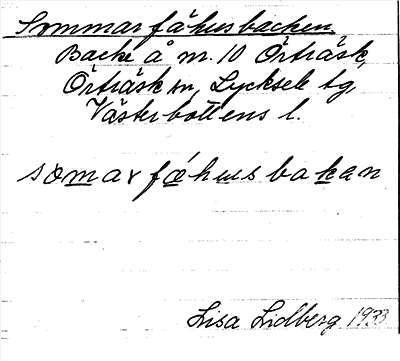 Sommarfähusbacken,
Backe å nr. 10 Örträsk,
Örträsk sn, Lycksele tg,
Västerbottens l.
somarfǽhusbakan
Lisa Lidberg 1933